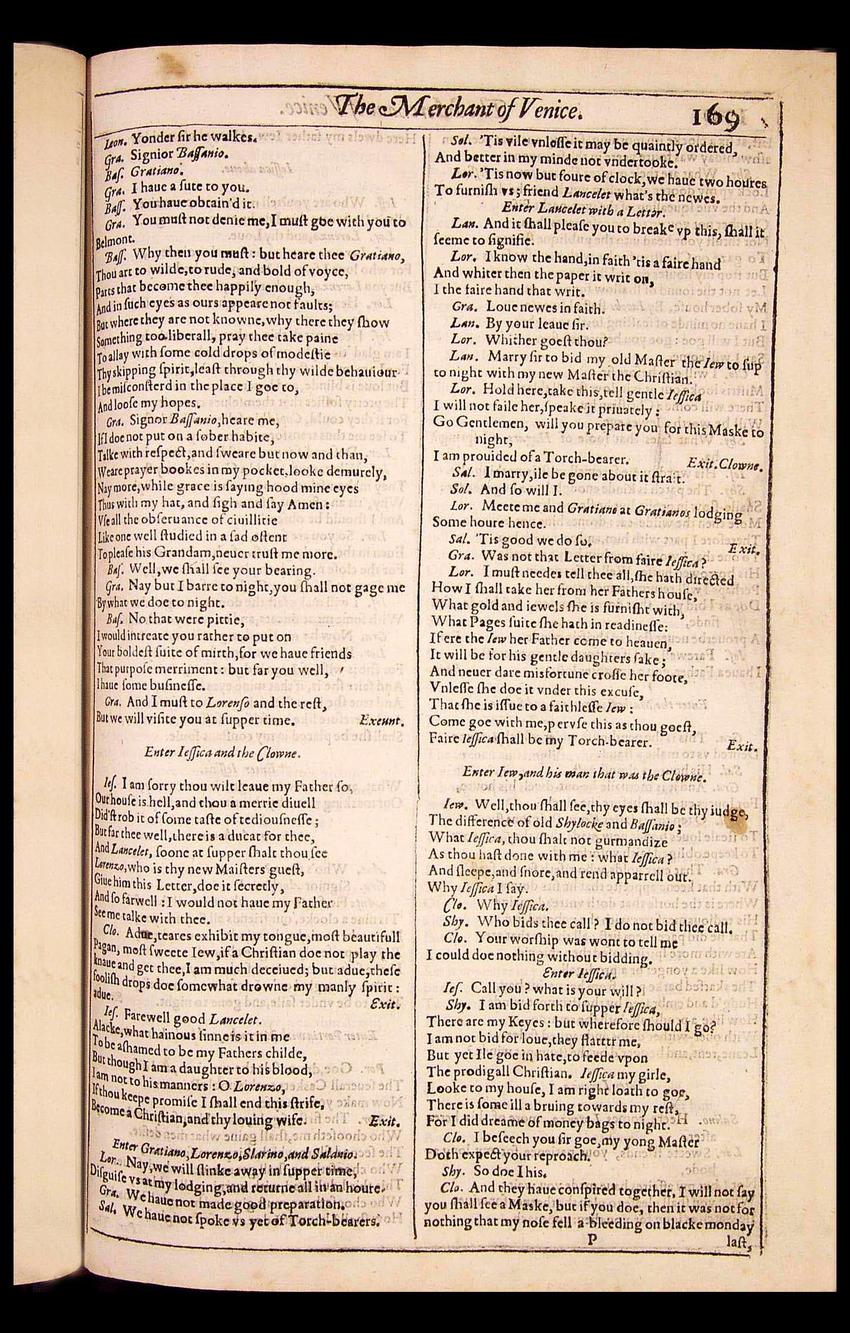 The Merchant of Venice. 169
Leon. Yonder ſir he walkes.
Gra. Signior Baſſanio.
Baſ. Gratiano.
Gra. I haue a ſute to you.
Baſſ. You haue obtain'd it.
Gra. You muſt not denie me, I muſt goe with you to
Belmont.
Baſſ. Why then you muſt: but heare thee Gratiano,
Thou art to wilde, to rude, and bold of voyce,
Parts that become thee happily enough,
And in ſuch eyes as ours appeare not faults;
But where they are not knowne, why there they ſhow
Something too liberall, pray thee take paine
To allay with ſome cold drops of modeſtie
Thy skipping ſpirit, leaſt through thy wilde behauiour
I be miſconſterd in the place I goe to,
And looſe my hopes.
Gra. Signor Baſſanio, heare me,
If I doe not put on a ſober habite,
Talke with reſpect, and ſweare but now and than,
Weare prayer bookes in my pocket, looke demurely,
Nay more, while grace is ſaying hood mine eyes
Thus with my hat, and ſigh and ſay Amen:
Vſe all the obſeruance of ciuillitie
Like one well ſtudied in a ſad oſtent
To pleaſe his Grandam, neuer truſt me more.
Baſ. Well, we ſhall ſee your bearing.
Gra. Nay but I barre to night, you ſhall not gage me
By what we doe to night.
Baſ. No that were pittie,
I would intreate you rather to put on
Your boldeſt ſuite of mirth, for we haue friends
That purpoſe merriment: but far you well,
I haue ſome buſineſſe.
Gra. And I muſt to Lorenſo and the reſt,
But we will viſite you at ſupper time. Exeunt.
Enter Ieſſica and the Clowne.
Ieſ. I am ſorry thou wilt leaue my Father ſo,
Our houſe is hell, and thou a merrie diuell
Did'ſt rob it of ſome taſte of tediouſneſſe;
But far thee well, there is a ducat for thee,
And Lancelet, ſoone at ſupper ſhalt thou ſee
Lorenzo, who is thy new Maiſters gueſt,
Giue him this Letter, doe it ſecretly,
And ſo farwell: I would not haue my Father
See me talke with thee.
Clo. Adue, teares exhibit my tongue, moſt beautifull
Pagan, moſt ſweete Iew, if a Chriſtian doe not play the
knaue and get thee, I am much deceiued; but adue, theſe
fooliſh drops doe ſomewhat drowne my manly ſpirit:
adue. Exit.
Ieſ. Farewell good Lancelet.
Alacke, what hainous ſinne is it in me
To be aſhamed to be my Fathers childe,
But though I am a daughter to his blood,
I am not to his manners: O Lorenzo,
If thou keepe promiſe I ſhall end this ſtrife,
Become a Chriſtian, and thy louing wife. Exit.
Enter Gratiano, Lorenzo, Slarino, and Salanio.
Lor. Nay, we will ſlinke away in ſupper time,
Diſguiſe vs at my lodging, and returne all in an houre.
Gra. We haue not made good preparation.
Sal. We haue not ſpoke vs yet of Torch-bearers.
Sol. 'Tis vile vnleſſe it may be quaintly ordered,
And better in my minde not vndertooke.
Lor. 'Tis now but foure of clock, we haue two houres
To furniſh vs; friend Lancelet what's the newes.
Enter Lancelet with a Letter.
Lan. And it ſhall pleaſe you to breake vp this, ſhall it
ſeeme to ſignifie.
Lor. I know the hand, in faith 'tis a faire hand
And whiter then the paper it writ on,
I the faire hand that writ.
Gra. Loue newes in faith.
Lan. By your leaue ſir.
Lor. Whither goeſt thou?
Lan. Marry ſir to bid my old Maſter the Iew to ſup
to night with my new Maſter the Chriſtian.
Lor. Hold here, take this, tell gentle Ieſſica
I will not faile her, ſpeake it priuately:
Go Gentlemen, will you prepare you for this Maske to
night,
I am prouided of a Torch-bearer. Exit. Clowne.
Sal. I marry, ile be gone about it ſtrait.
Sol. And ſo will I.
Lor. Meete me and Gratiano at Gratianos lodging
Some houre hence.
Sal. 'Tis good we do ſo. Exit.
Gra. Was not that Letter from faire Ieſſica?
Lor. I muſt needes tell thee all, ſhe hath directed
How I ſhall take her from her Fathers houſe,
What gold and iewels ſhe is furniſht with,
What Pages ſuite ſhe hath in readineſſe:
If ere the Iew her Father come to heauen,
It will be for his gentle daughters ſake;
And neuer dare misfortune croſſe her foote,
Vnleſſe ſhe doe it vnder this excuſe,
That ſhe is iſſue to a faithleſſe Iew:
Come goe with me, pervſe this as thou goeſt,
Faire Ieſſica ſhall be my Torch-bearer. Exit.
Enter Iew, and his man that was the Clowne.
Iew. Well, thou ſhall ſee, thy eyes ſhall be thy iudge,
The difference of old Shylocke and Baſſanio;
What Ieſſica, thou ſhalt not gurmandize
As thou haſt done with me: what Ieſſica?
And ſleepe, and ſnore, and rend apparrell out.
Why Ieſſica I ſay.
Clo. Why Ieſſica.
Shy. Who bids thee call? I do not bid thee call.
Clo. Your worſhip was wont to tell me
I could doe nothing without bidding.
Enter Ieſſica.
Ieſ. Call you? what is your will?
Shy. I am bid forth to ſupper Ieſſica,
There are my Keyes: but wherefore ſhould I go?
I am not bid for loue, they flatter me,
But yet Ile goe in hate, to feede vpon
The prodigall Chriſtian. Ieſſica my girle,
Looke to my houſe, I am right loath to goe,
There is ſome ill a bruing towards my reſt,
For I did dreame of money bags to night.
Clo. I beſeech you ſir goe, my yong Maſter
Doth expect your reproach.
Shy. So doe I his.
Clo. And they haue conſpired together, I will not ſay
you ſhall ſee a Maske, but if you doe, then it was not for
nothing that my noſe fell a bleeding on blacke monday
P last,